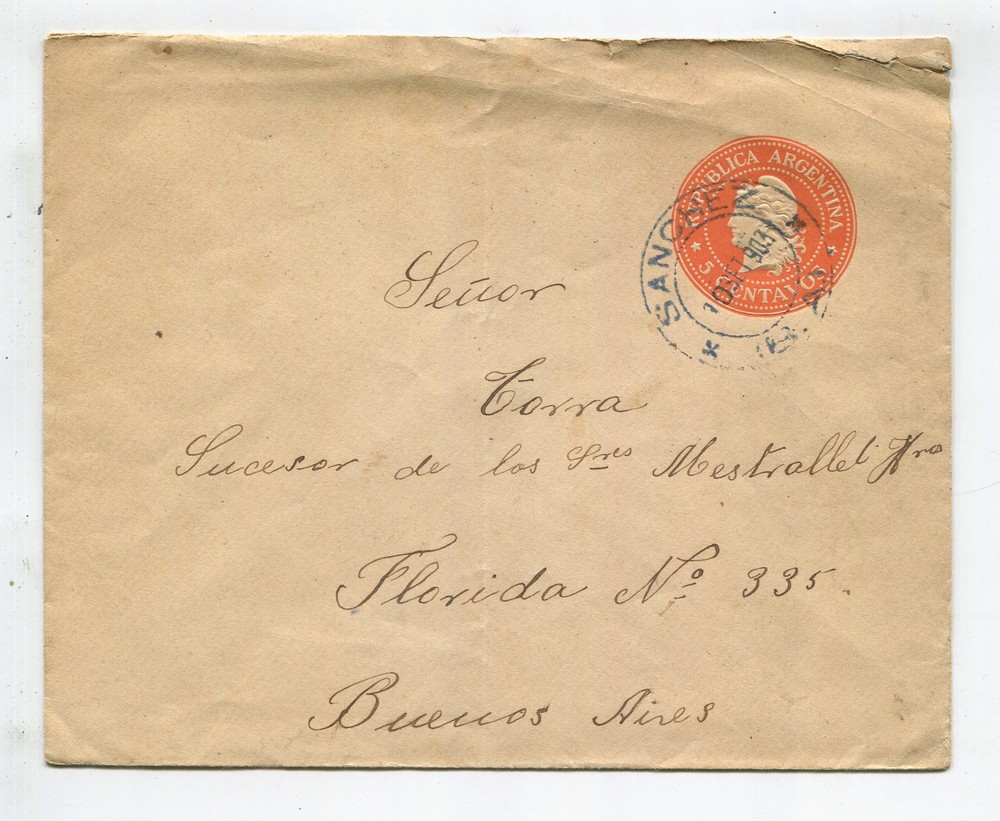 REPUBLICA ARGENTINA
5 CENTAVOS
SANCHEZ
SET 903
Señor
Torra
Sucesor de los Sres Mestrallet Hno
Florida Nº 335.
Buenos Aires